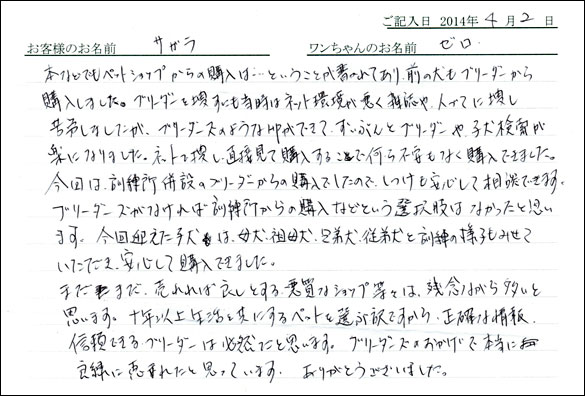 ご記入日 2014年 4月 2日
お客様のお名前 サガラ ワンちゃんのお名前 ゼロ.
本などでもペットショップからの購入は…ということが書かれており、前の犬もブリーダーから
購入しました。ブリーダーを捜すにも当時はネット環境が悪く雑誌や、人づてに捜し
苦労しましたが、ブリーダーズのようなHPができて、ずいぶんとブリーダーや、子犬検索が
楽になりました。ネットで捜し、直接見て購入することで何ら不安もなく購入できました。
今回は、訓練所併設のブリーダーからの購入でしたので、しつけも安心して相談できます。
ブリーダーズがなければ訓練所からの購入などという選択肢はなかったと思い
ます。今回迎えた子犬は、母犬、祖母犬、兄弟犬、従弟犬と訓練の様子もみせて
いただき、安心して購入できました。
まだまだ、売れれば良しとする、悪質なショップ等々は、残念ながら多いと
思います。十年以上生活を共にするペットを選ぶ訳ですから、正確な情報、
信頼できるブリーダーは必然だと思います。ブリーダーズのおかげで本当に
良縁に恵まれたと思っています。ありがとうございました。